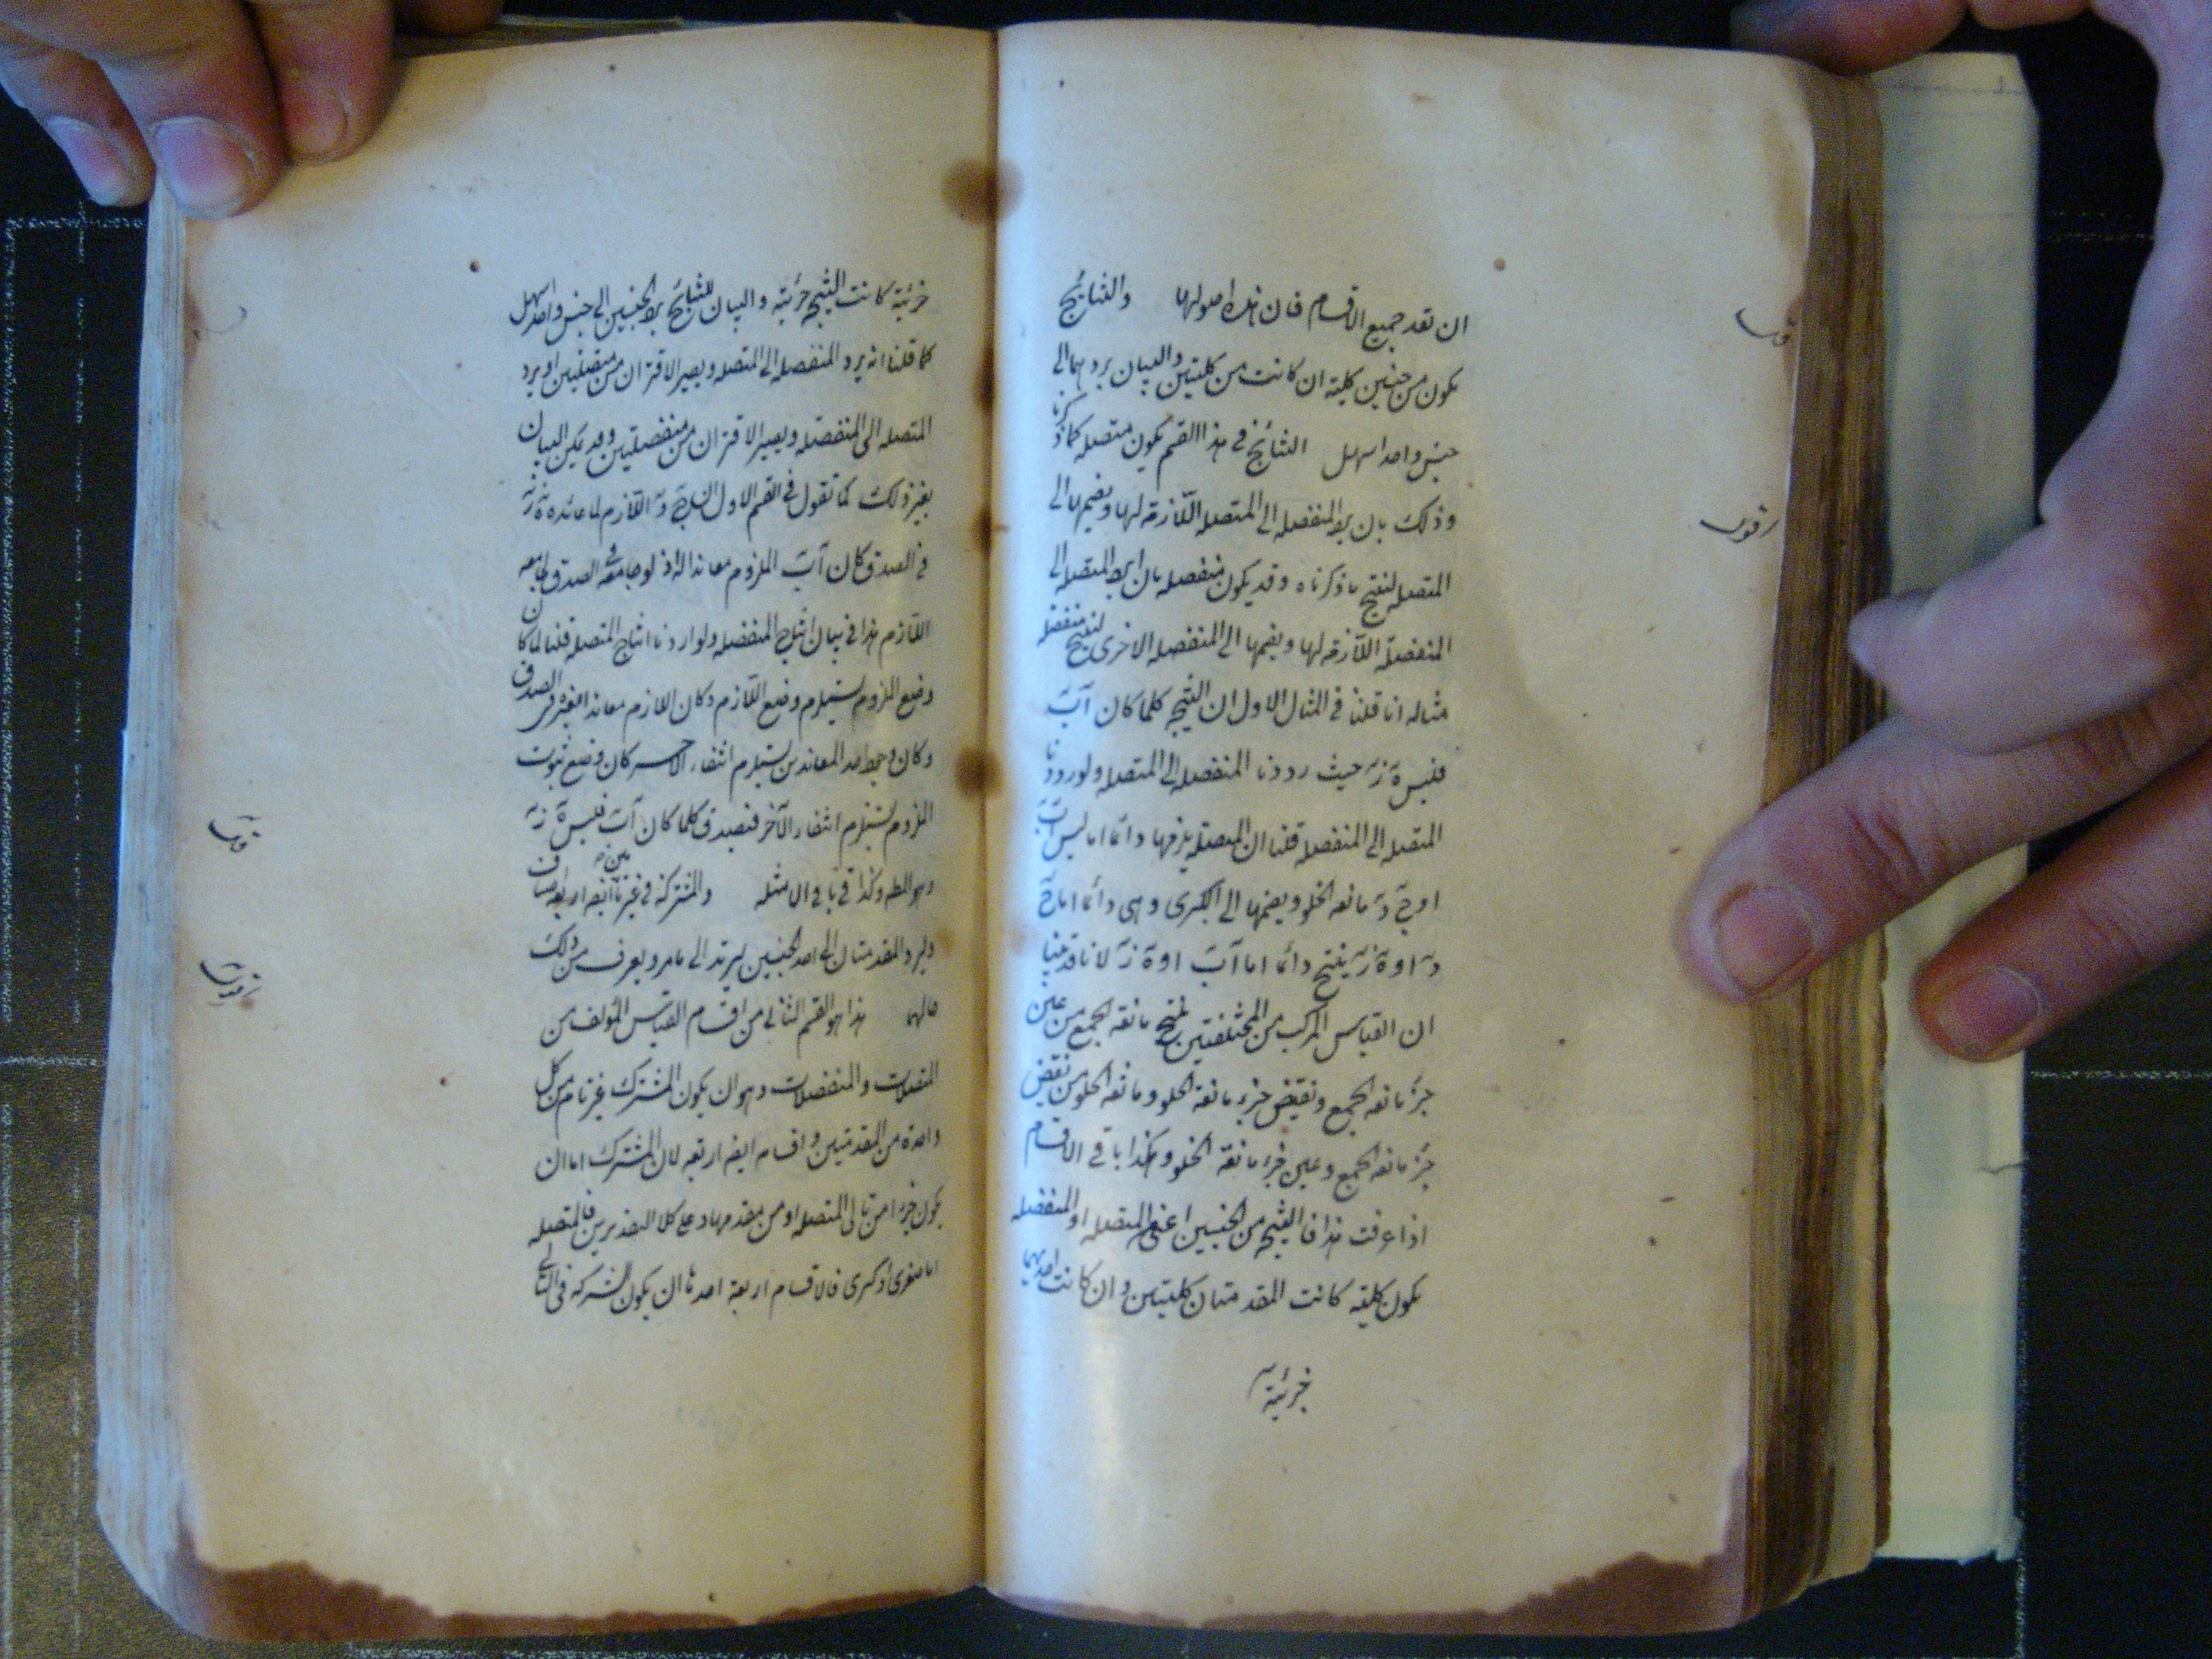 ان تعد جميع الاقسام فان هذه اصولها والنتائج
يكون من جنسين كلية ان كانت من كليتين والبيان بردهما الى
جنس واحد اسهل النتائج في هذا القسم يكون متصلة كما ذكرنا
وذلك بان يرد المنفصلة الى المتصلة اللازمة لها ويضمها الى
المتصلة لينتج ما ذكرناه وقد يكون منفصلة بان يرد المتصلة الى
المنفصلة اللازمة لها ويضمها الى المنفصلة الاخرى لينتج منفصلة
مثاله انا قلنا في المثال الاول ان النتيجة كلما كان آب
فليس ة ز حيث رددنا المنفصلة الى المتصلة ولو رددنا
المتصلة الى المنفصلة قلنا ان المتصلة يلزمها دائما اما ليس آب
او ج د مانعة الخلو ويضمها الى الكبرى وهي دائما اما ج
د او ة ز ينتج دائما اما آب او ة ز لانا قد بينا
ان القياس المركب من المختلفتين ينتج مانعة الجمع من عين
جزء مانعة الجمع ونقيض جزء مانعة الخلو ومانعة الخلو من نقيض
جزء مانعة الجمع وعين جزء مانعة الخلو وهكذا باقي الاقسام
اذا عرفت هذا فالنتيجة من الجنسين اعني المتصلة او المنفصلة
يكون كلية كانت المقدمتان كليتين وان كانت احديهما
جزئية
جزئية كانت النتيجة جزئية والبيان للنتائج برد الجنسين الى جنس واحد اسهل
كما قلنا انه يرد المنفصلة الى المتصلة ويصير الاقتران من متصلتين او يرد
المتصلة الى المنفصلة ويصير الاقتران من منفصلتين وقد يمكن البيان
بغير ذلك كما تقول في القسم الاول ج د اللازم لما عانده ة ز
في الصدق كان آب الملزوم معاندا له اذ لو جامعه في الصدق لجامعه
اللازم هذا في بيان انتاج المنفصلة ولو اردنا انتاج المتصلة قلنا لما كان
وضع الملزوم يستلزم وضع اللازم وكان اللازم معاندا لغيره في الصدق
وكان وضع احد المعاندين يستلزم انتفاء الآخر كان وضع ثبوت
الملزوم يستلزم انتفاء الآخر فتصدق كلما كان آب فليس ة ز
وهو المط وكذا في باقي الامثلة والمشتركة في غير تام ايضا اربعة اصناف
وليرد المقدمتان الى احد الجنسين ليرتد الى ما مر ويعرف من ذلك
حالهما هذا هو القسم الثاني من اقسام القياس المؤلف من
المتصلات والمنفصلات وهو ان يكون المشترك غير تام من كل
واحدة من المقدمتين واقسامه ايضا اربعة لان المشترك اما ان
يكون جزءا من تالى المتصلة او من مقدمها وعلى كلا التقديرين فالمتصلة
اما صغرى او كبرى فالاقسام اربعة احدها ان يكون الشركة في التالي